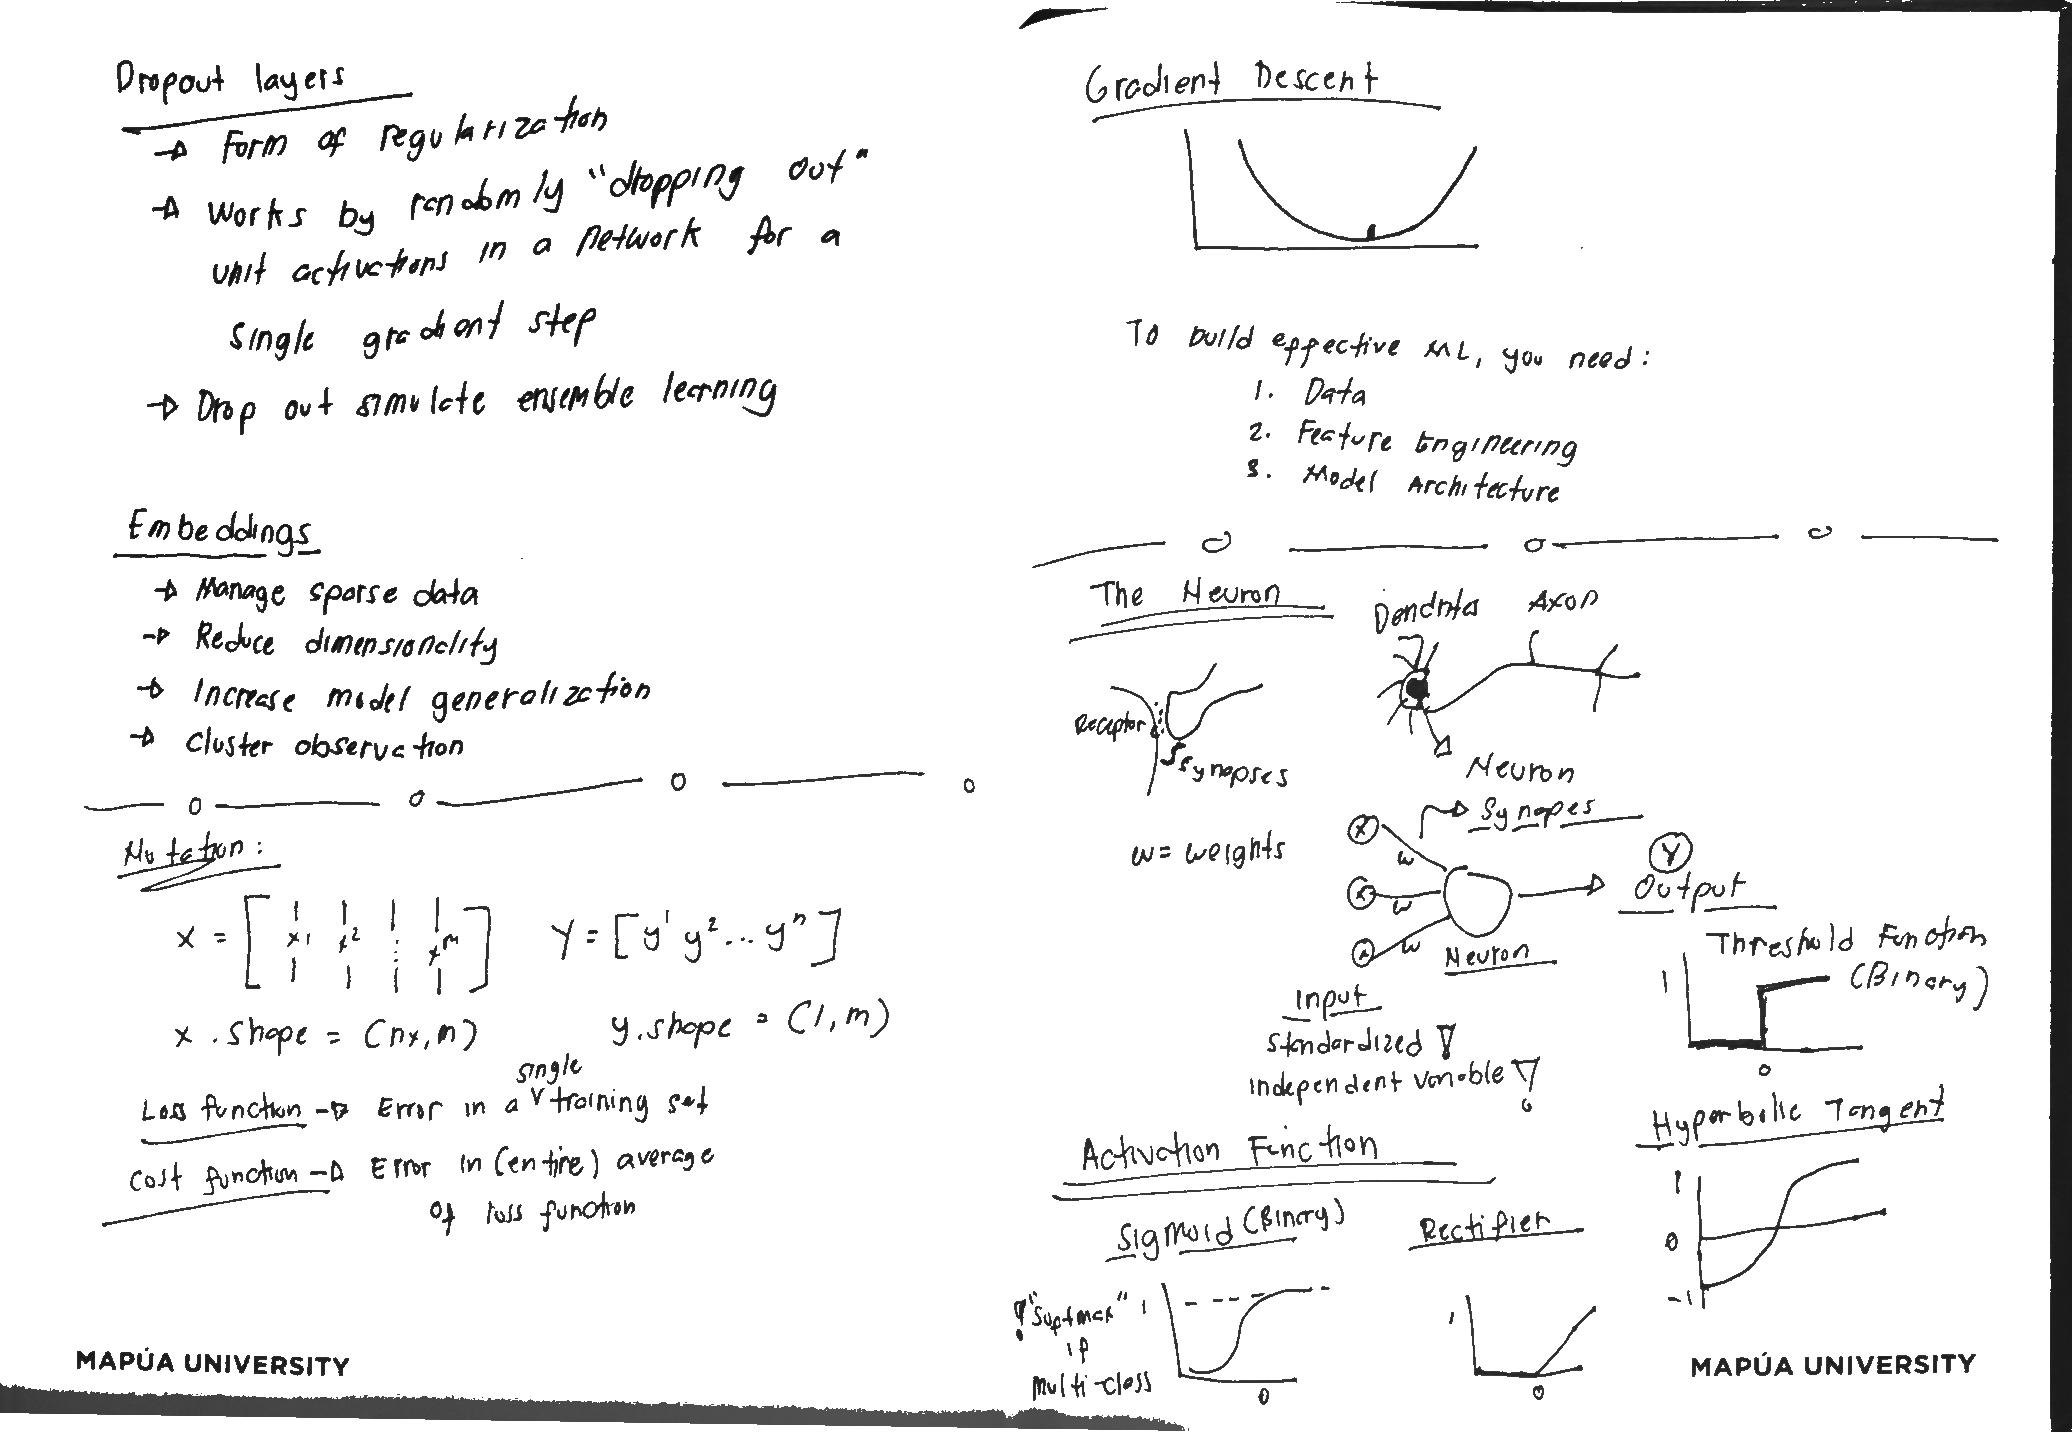 Dropout layers
→ Form of regularization
→ Works by randomly "dropping out"
unit activations in a network for a
single gradient step
→ Drop out simulate ensemble learning
Embeddings
→ Manage sparse data
→ Reduce dimensionality
→ Increase model generalization
→ Cluster observation
Notation:
X = [x¹ x² ⋮ xᵐ] Y = [y¹ y² ... yⁿ]
x . shape = (nx, m) y.shape = (1, m)
single
Loss function → Error in a ˅ training set
Cost function → Error in (entire) average
of loss function
MAPÚA UNIVERSITY
Gradient Descent
To build effective ML, you need:
1. Data
2. Feature Engineering
3. Model Architecture
The Neuron
Dendrites Axon
Receptor
Synopses
Neuron
Synopes
w = weights
X w
X w
X w
Neuron
Y
Output
Input
Standardized !
independent variable !
Threshold Function
(Binary)
1
0
Hyperbolic Tangent
1
0
-1
Activation Function
Sigmoid (Binary)
! "Softmax"
if
multi-class
1
0
Rectifier
1
0
MAPÚA UNIVERSITY